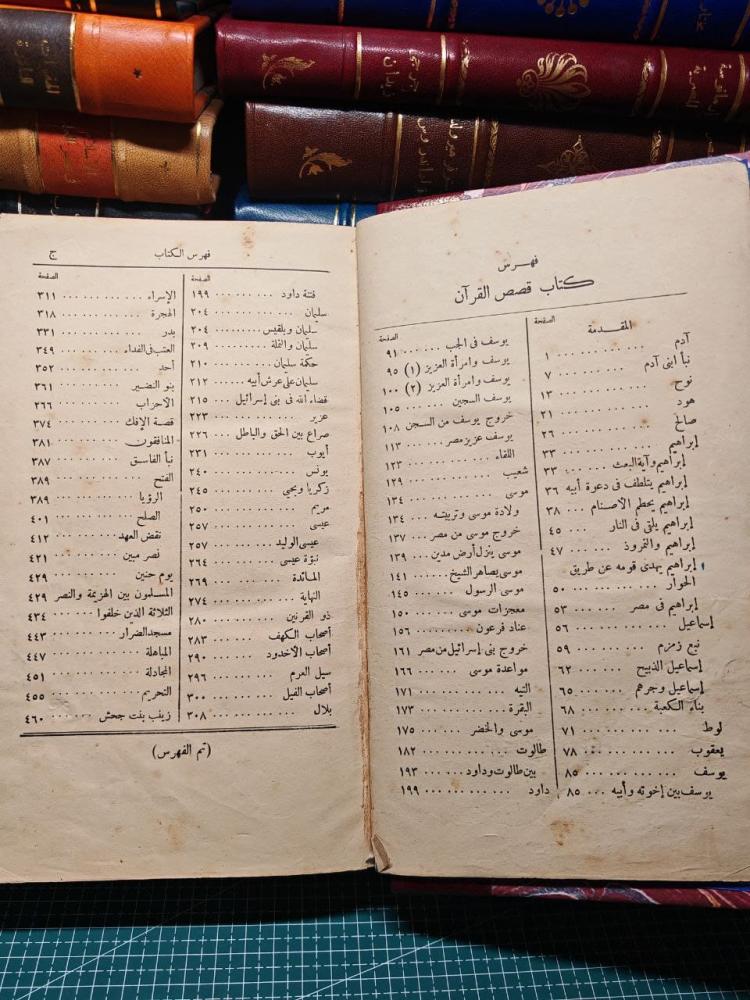 فهرس
كتاب قصص القرآن
الصفحة
المقدمة
آدم ١
نبأ ابنى آدم ٧
نوح ١٣
هود ٢١
صالح ٢٦
إبراهيم ٣٣
إبراهيم وآية البعث ٣٣
إبراهيم يتلطف فى دعوة أبيه ٣٦
إبراهيم يحطم الأصنام ٣٨
إبراهيم يلقى فى النار ٤٥
إبراهيم والنمروذ ٤٧
إبراهيم يهدى قومه عن طريق
الحوار ٥٠
إبراهيم فى مصر ٥٣
إسماعيل ٥٦
نبع زمزم ٥٩
إسماعيل الذبيح ٦٢
إسماعيل وجرهم ٦٥
بناء الكعبة ٦٨
لوط ٧١
يعقوب ٧٨
يوسف ٨٥
يوسف بين إخوته وأبيه ٨٥
الصفحة
يوسف فى الجب ٩١
يوسف وامرأة العزيز (١) ٩٥
يوسف وامرأة العزيز (٢) ١٠٠
يوسف السجين ١٠٥
خروج يوسف من السجن ١٠٨
يوسف عزيز مصر ١١٣
اللقاء ١٢٣
شعيب ١٢٩
موسى ١٣٤
ولادة موسى وتربيته ١٣٤
خروج موسى من مصر ١٣٧
موسى ينزل أرض مدين ١٣٩
موسى يصاهر الشيخ ١٤١
موسى الرسول ١٤٥
معجزات موسى ١٥٠
عناد فرعون ١٥٦
خروج بنى إسرائيل من مصر ١٦١
مواعدة موسى ١٦٦
التيه ١٧١
البقرة ١٧٣
موسى والخضر ١٧٥
طالوت ١٨٢
بين طالوت وداود ١٩٣
داود ١٩٩
فهرس الكتاب
ج
الصفحة
فتنة داود ١٩٩
سليمان ٢٠٤
سليمان وبلقيس ٢٠٤
سليمان والنملة ٢٠٩
حكمة سليمان ٢١٠
سليمان على عرش أبيه ٢١٢
قضاء الله فى بنى إسرائيل ٢١٥
عزير ٢٢٣
صراع بين الحق والباطل ٢٢٦
أيوب ٢٣١
يونس ٢٤٠
زكريا ويحيى ٢٤٥
مريم ٢٥٠
عيسى ٢٥٧
عيسى الوليد ٢٥٧
نبوّة عيسى ٢٦٤
المائدة ٢٦٩
النهاية ٢٧٤
ذو القرنين ٢٨٠
أصحاب الكهف ٢٨٣
أصحاب الأخدود ٢٩٠
سيل العرم ٢٩٦
أصحاب الفيل ٣٠٠
بلال ٣٠٨
الصفحة
الإسراء ٣١١
الهجرة ٣١٨
بدر ٣٣١
العتب فى الفداء ٣٤٩
أحد ٣٥٢
بنو النضير ٣٦١
الاحزاب ٢٦٦
قصة الإفك ٣٧٤
المنافقون ٣٨١
نبأ الفاسق ٣٨٧
الفتح ٣٨٩
الرؤيا ٣٨٩
الصلح ٤٠١
نقض العهد ٤١٢
نصر مبين ٤٢١
يوم حنين ٤٢٩
المسلمون بين الهزيمة والنصر ٤٢٩
الثلاثة الذين خلفوا ٤٣٤
مسجد الضرار ٤٤٣
المباهلة ٤٤٧
المجادلة ٤٥١
التحريم ٤٥٥
زينب بنت جحش ٤٦٠
(تم الفهرس)